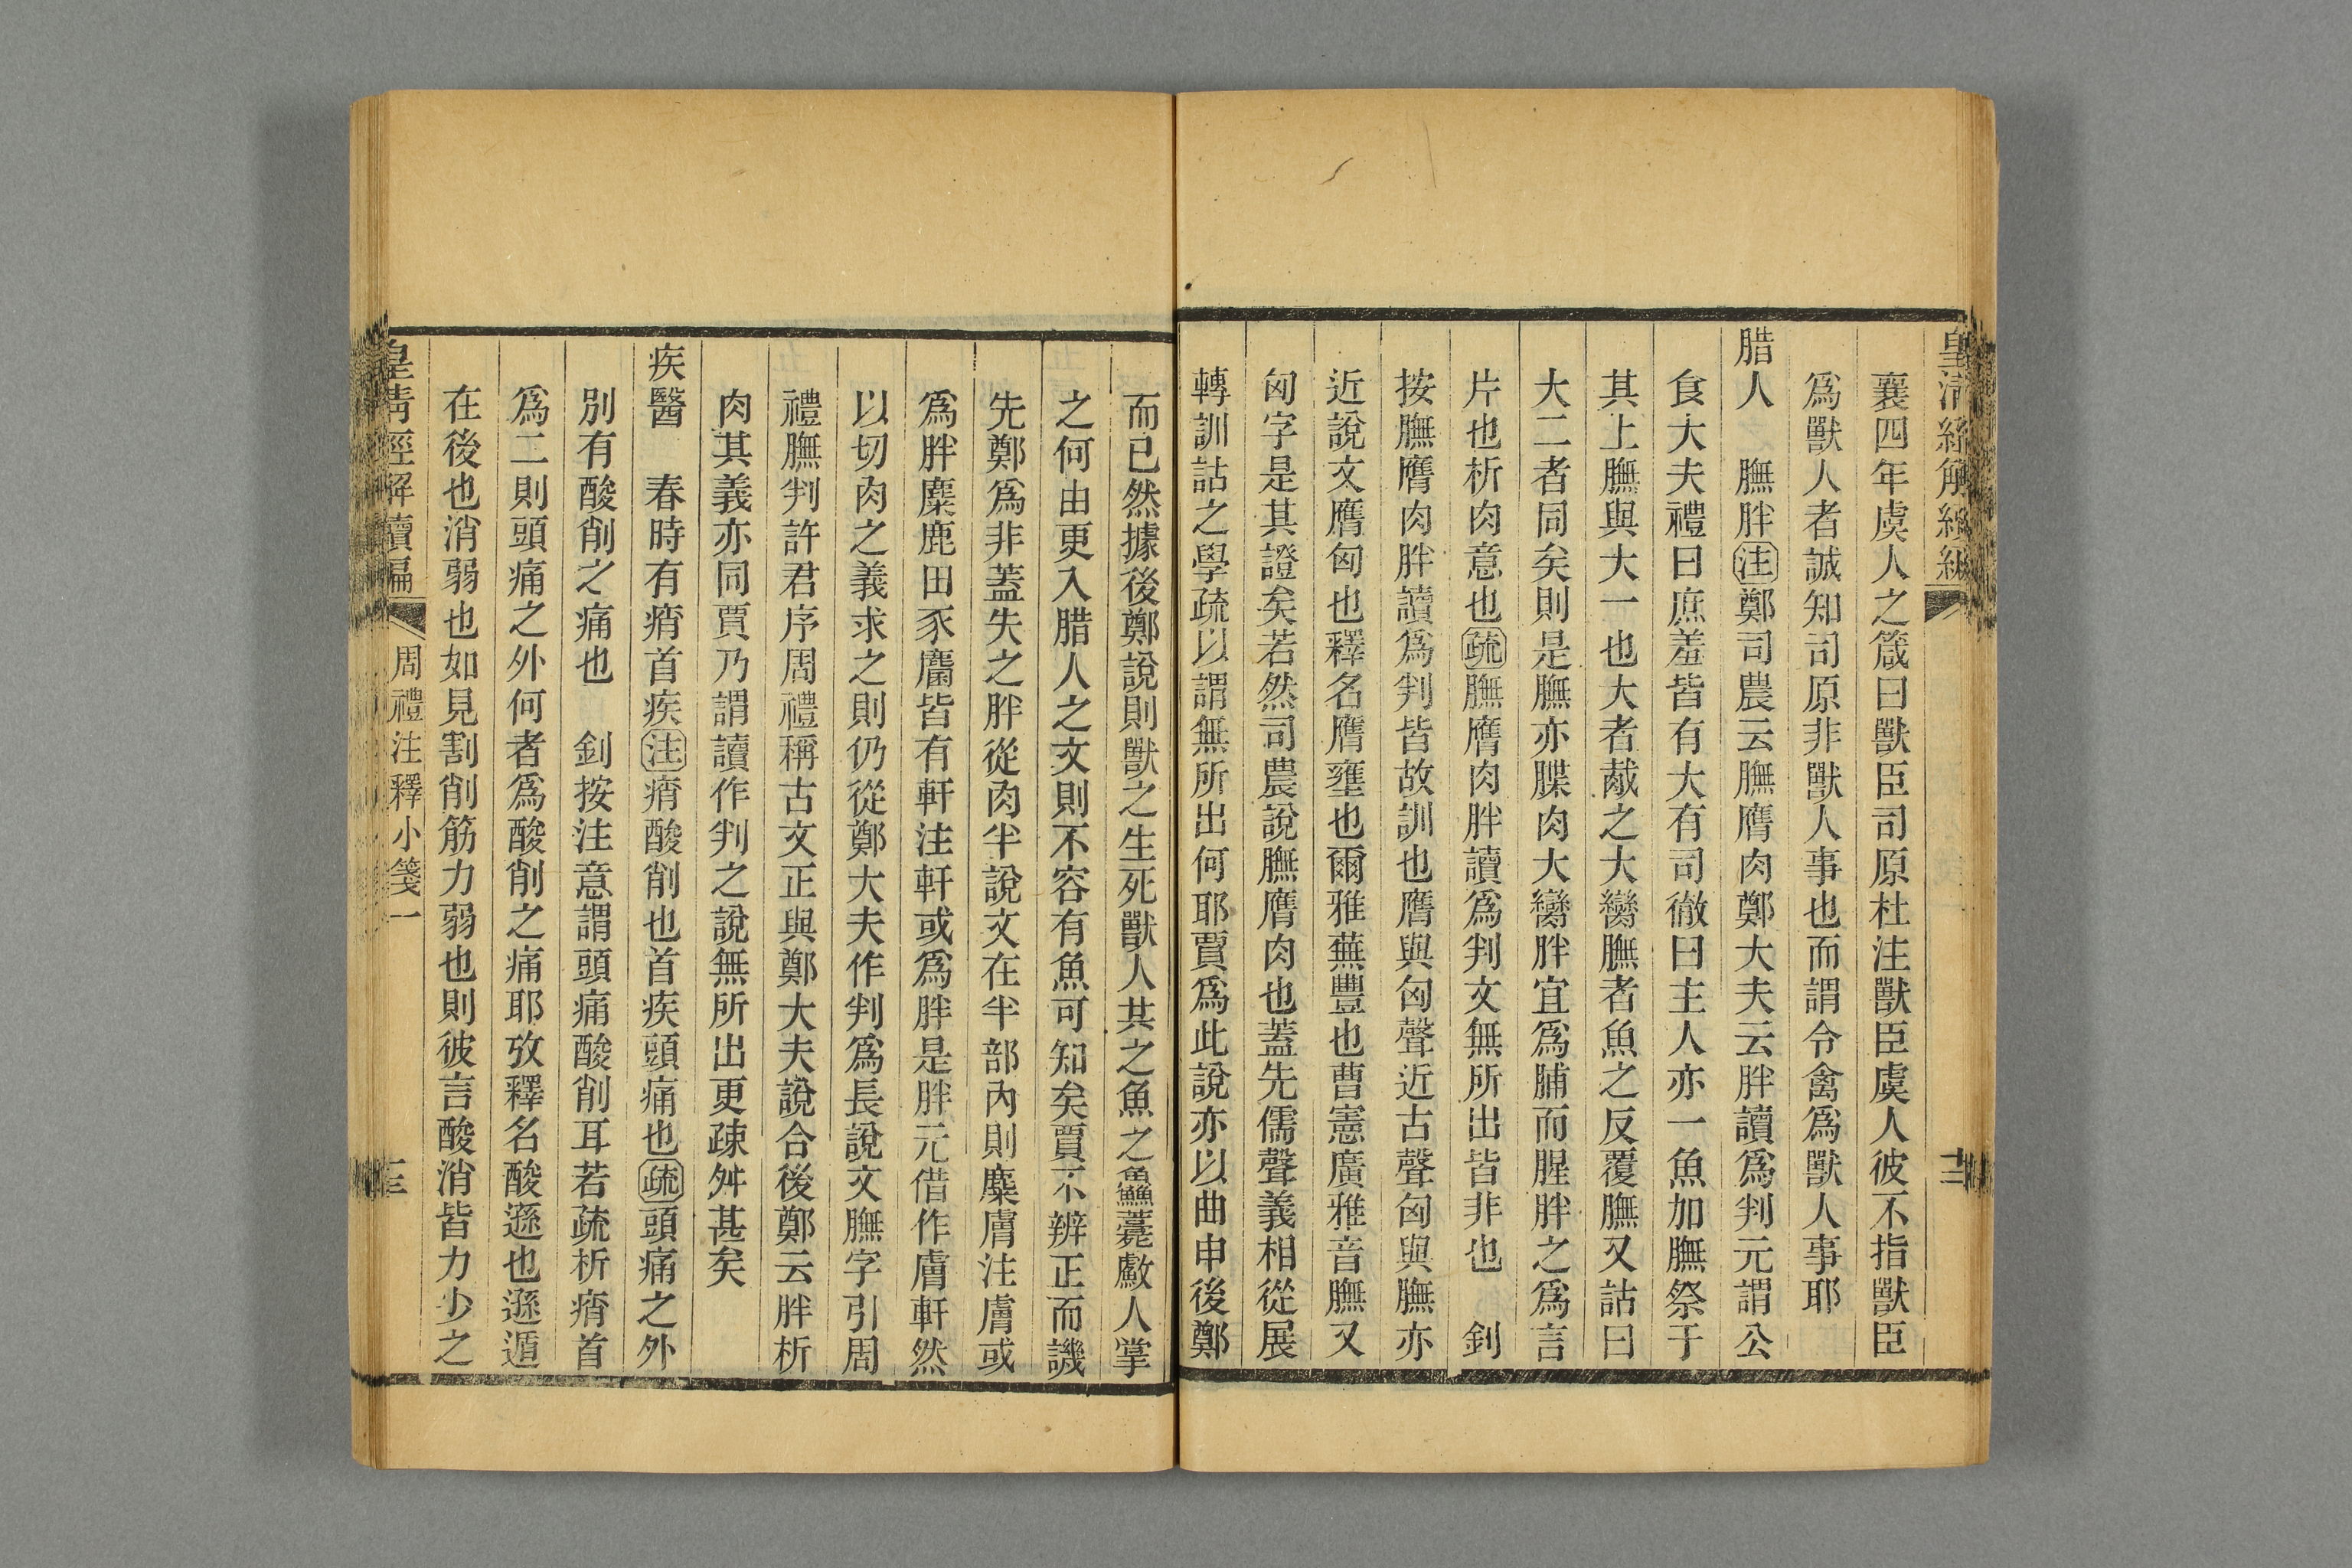 皇清經解續編
襄四年虞人之箴曰獸臣司原杜注獸臣虞人彼不指獸臣
爲獸人者誠知司原非獸人事也而謂令禽爲獸人事耶
腊人　膴胖注鄭司農云膴膺肉鄭大夫云胖讀爲判元謂公
食大夫禮曰庶羞皆有大有司徹曰主人亦一魚加膴祭于
其上膴與大一也大者胾之大臠膴者魚之反覆膴又詁曰
大二者同矣則是膴亦牒肉大臠胖宜爲脯而腥胖之爲言
片也析肉意也疏膴膺肉胖讀爲判文無所出皆非也　釗
按膴膺肉胖讀爲判皆故訓也膺與匈聲近古聲匈與膴亦
近說文膺匈也釋名膺壅也爾雅蕪豐也曹憲廣雅音膴又
匈字是其證矣若然司農說膴膺肉也蓋先儒聲義相從展
轉訓詁之學疏以謂無所出何耶賈爲此說亦以曲申後鄭
而已然據後鄭說則獸之生死獸人其之魚之鱻薧䱷人掌
之何由更入腊人之文則不容有魚可知矣賈不辨正而譏
先鄭爲非蓋失之胖從肉半說文在半部內則麋膚注膚或
爲胖麋鹿田豕麕皆有軒注軒或爲胖是胖元借作膚軒然
以切肉之義求之則仍從鄭大夫作判爲長說文膴字引周
禮膴判許君序周禮稱古文正與鄭大夫說合後鄭云胖析
肉其義亦同賈乃謂讀作判之說無所出更疎舛甚矣
疾醫　春時有痟首疾注痟酸削也首疾頭痛也疏頭痛之外
別有酸削之痛也　釗按注意謂頭痛酸削耳若疏析痟首
爲二則頭痛之外何者爲酸削之痛耶攷釋名酸遜也遜遁
在後也消弱也如見割削筋力弱也則彼言酸消皆力少之
皇清經解續編　周禮注釋小箋一